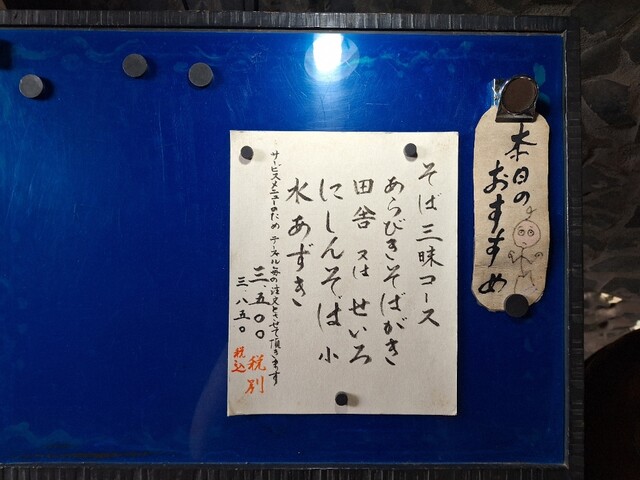 本日の
おすすめ
そば三昧コース
あらびきそばがき
田舎 又は せいろ
にしんそば 小
水あずき
サービスメニューのため テーブル毎の注文とさせて頂きます
三、五〇〇 税別
三、八五〇 税込